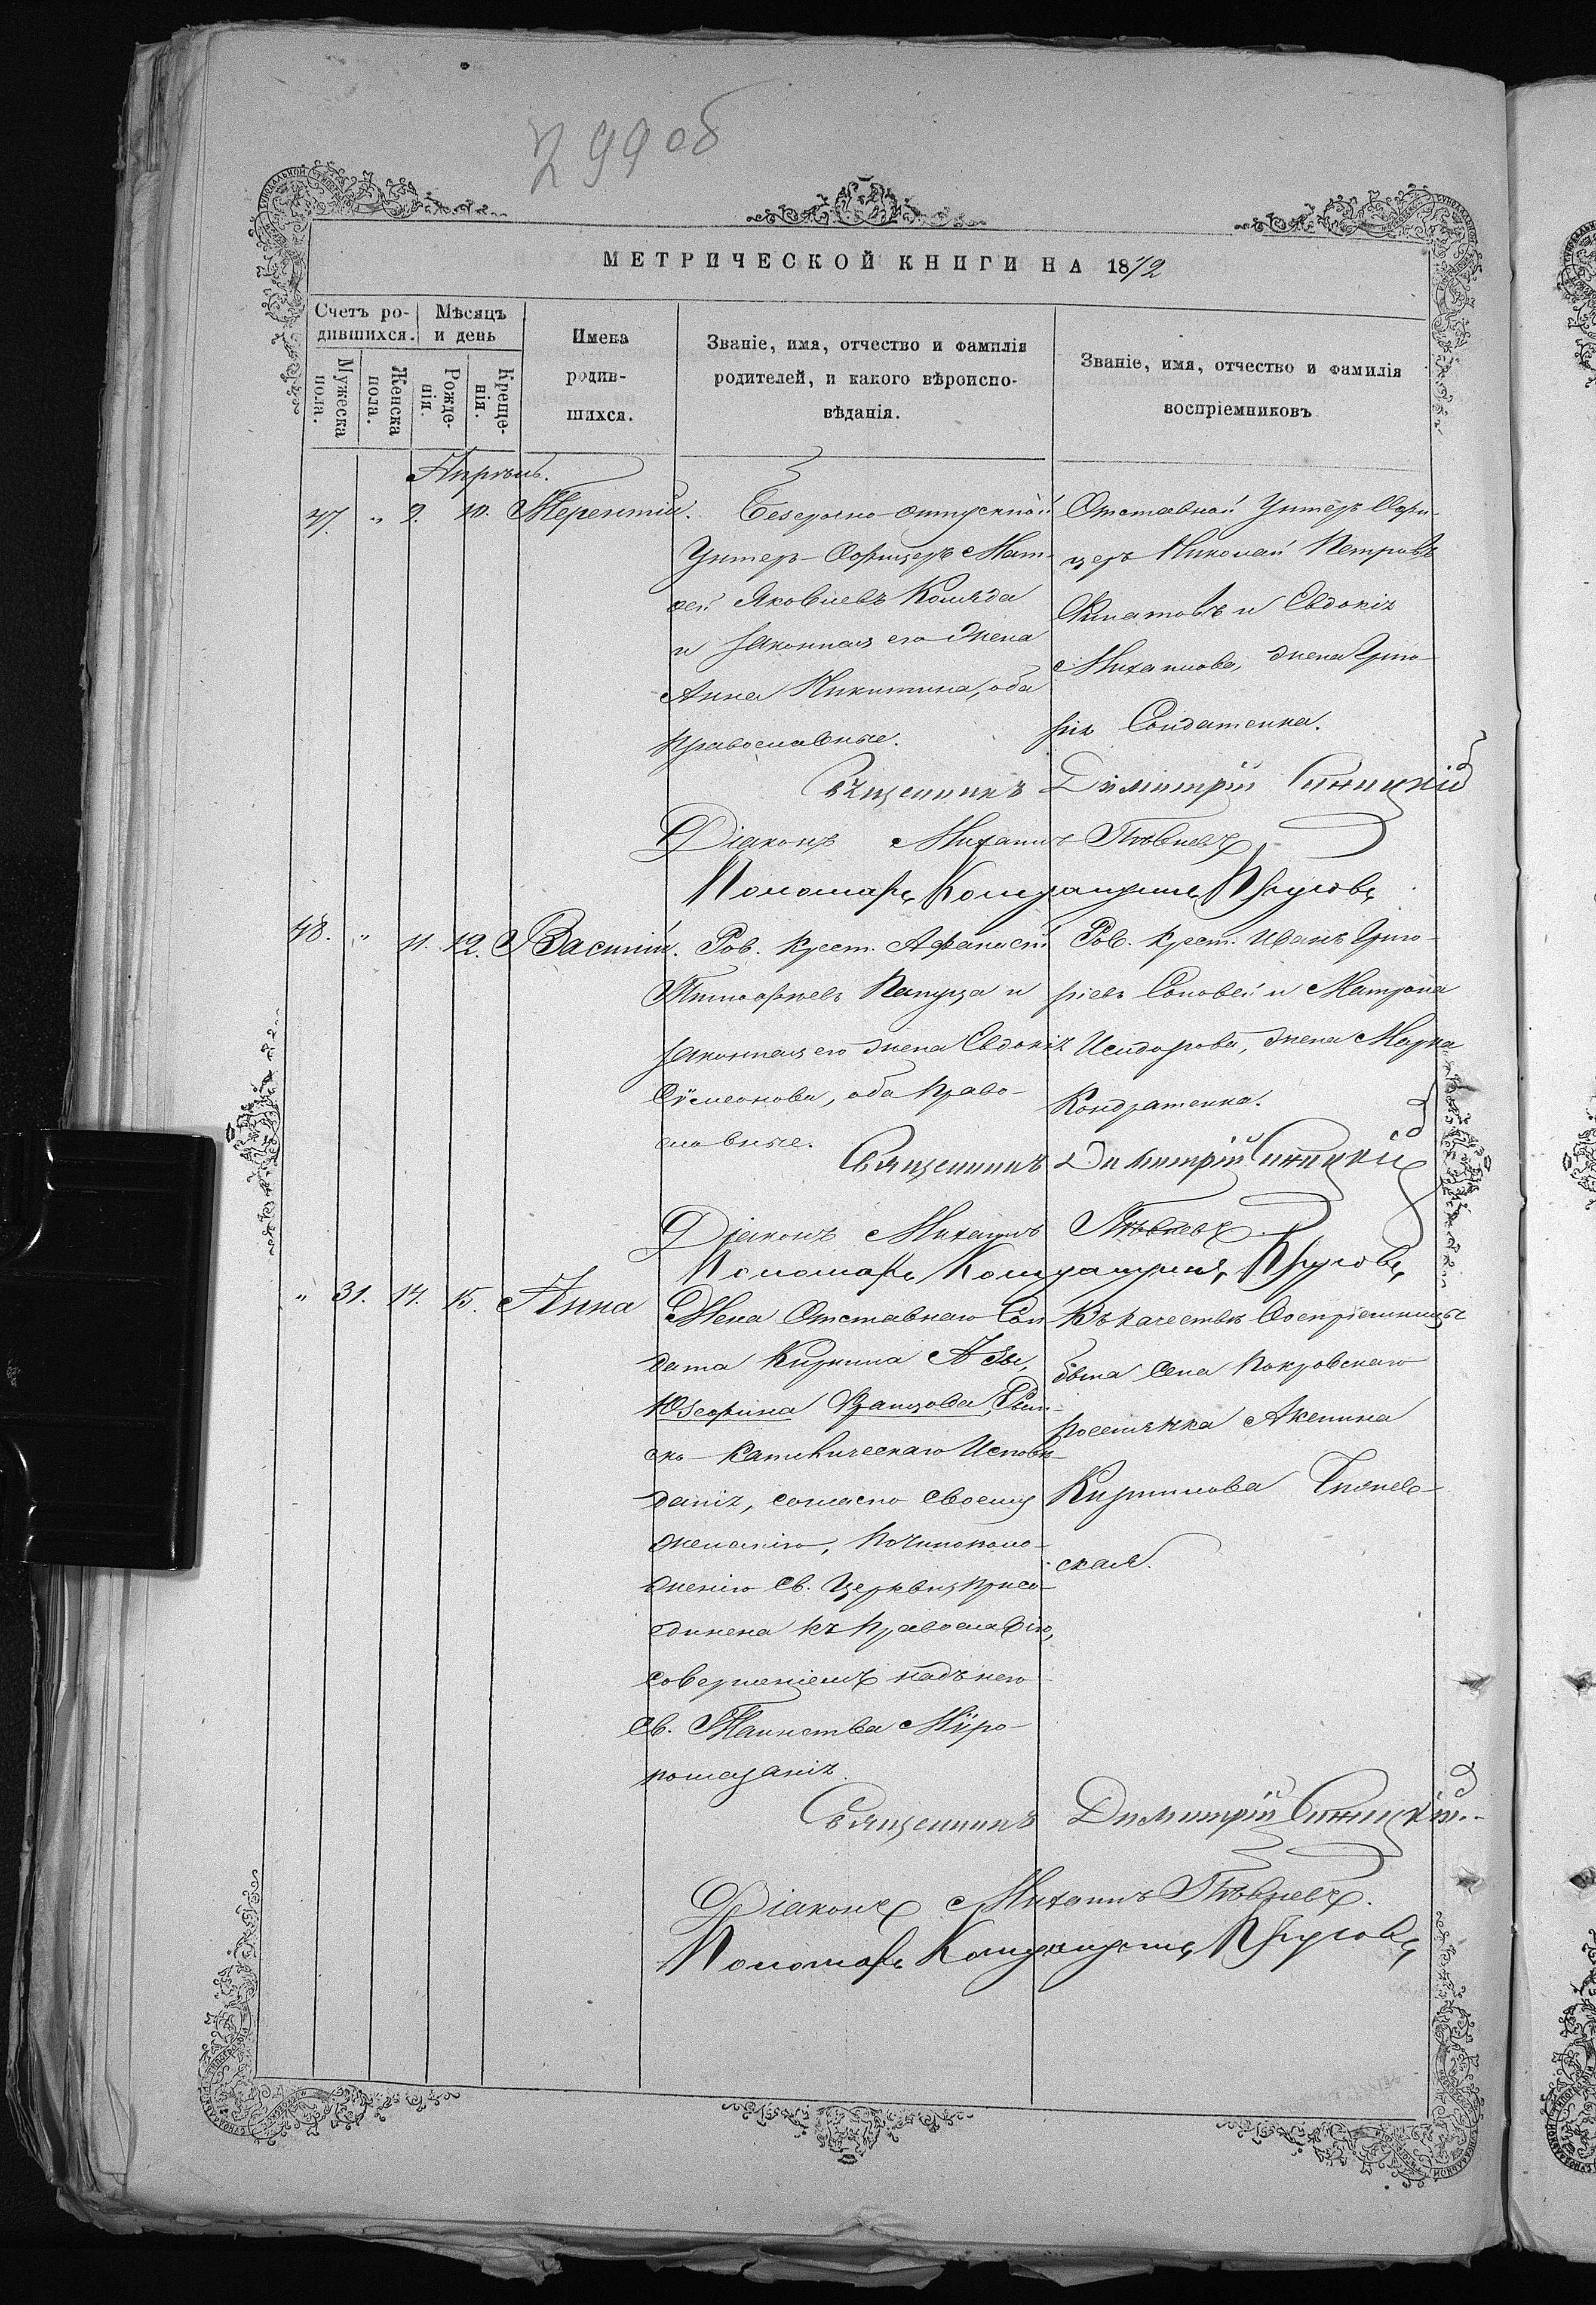 299 об
МЕТРИЧЕСКОЙ КНИГИ НА 1872
Счетъ родившихся.
Мужеска пола.
Женска пола.
Мѣсяцъ и день
Рожденія.
Крещенія.
Имена родившихся.
Званіе, имя, отчество и фамилія родителей, и какого вѣроисповѣданія.
Званіе, имя, отчество и фамилія воспріемниковъ
Апрѣль.
47. " 9. 10. Терентій.
Безсрочно-отпускной
Унтер-Офицеръ Мат-
фей Яковлевъ Коляда
и законная его жена
Анна Никитина, оба
православные.
Отставной Унтеръ Офи-
церъ Николай Петровъ
Филатовъ и Евдокія
Михаилова, жена Григо-
рія Солдатенка.
Священникъ Димитрій Синицкій
Діаконъ Михаилъ Пѣвневъ
Пономарь Кондратій
48. " 11. 12. Василій.
Тимофеевъ Папуца и
законная его жена Евдокія
Сѵмеонова, оба право-
славные.
Ров. крест. Афанасій
Ров. крест. Иванъ Григо-
ріевъ Соловей и Матрона
Исидорова, жена Марка
Кондратенка.
Священникъ Димитрій Синицкій
Діаконъ Михаилъ Пѣвневъ
Пономарь
" 31. 14. 15. Анна
Жена Отставнаго Сол
дата Кирилла
Римско-Католическаго Исповѣ-
данія, согласно своему
желанію, по чиноположенію Св. Церкви, присо-
единена къ Православію,
совершеніемъ надъ нею
Св. Таинства Мѵро-
помазанія.
Въ качествѣ Воспріемницы
была Села Покровскаго
поселянка Акилина
Кириллова
ская.
Священникъ Димитрій Синицкій.
Діаконъ Михаилъ Пѣвневъ.
Пономарь